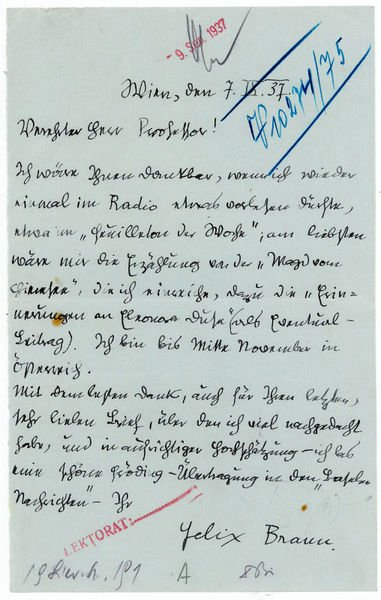 - 9. Sep. 1937
Wien, den 7. IX. 37.
Verehrter Herr Professor!
Ich wäre Ihnen dankbar, wenn ich wieder
einmal im Radio etwas vorlesen dürfte,
etwa im „Feuilleton der Woche“; am liebsten
wäre mir die Erzählung von der „Magd vom
die ich einreiche, dazu die „Erin-
nerungen an Eleonora Duse“ (als Eventual-
Beitrag). Ich bin bis Mitte November in
Österreich.
Mit dem besten Dank, auch für Ihren letzten,
sehr lieben Brief, über den ich viel nachgedacht
habe, und in aufrichtiger Hochschätzung – ich las
eine schöne Fröding-Übertragung in den „Basler
Nachrichten“ – Ihr
LEKTORAT:
Felix Braun.
A